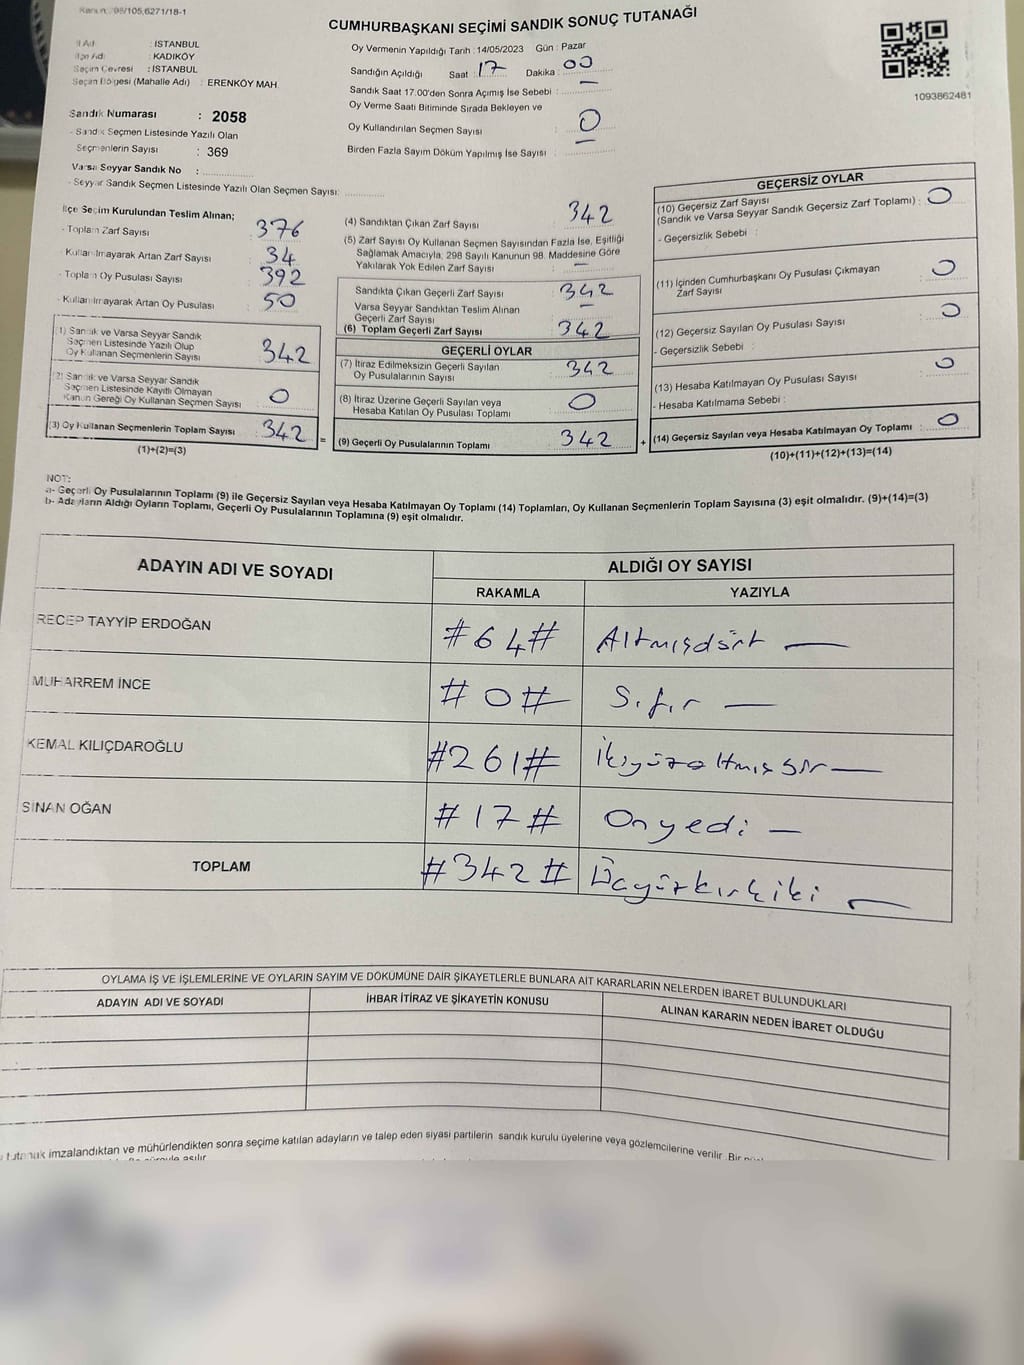 CUMHURBAŞKANI SEÇİMİ SANDIK SONUÇ TUTANAĞI
İl Adı : İSTANBUL
İlçe Adı : KADIKÖY
Seçim Çevresi : İSTANBUL
Seçim Bölgesi (Mahalle Adı) : ERENKÖY MAH
Oy Vermenin Yapıldığı Tarih : 14/05/2023 Gün : Pazar
Sandığın Açıldığı Saat : 17 Dakika : 00
Sandık Saat 17:00'den Sonra Açımış İse Sebebi : —
Oy Verme Saati Bitiminde Sırada Bekleyen ve
Oy Kullandırılan Seçmen Sayısı : 0
Birden Fazla Sayım Döküm Yapılmış İse Sayısı : —
1093862481
Sandık Numarası : 2058
- Sandık Seçmen Listesinde Yazılı Olan
Seçmenlerin Sayısı : 369
Varsa Seyyar Sandık No :
- Seyyar Sandık Seçmen Listesinde Yazılı Olan Seçmen Sayısı:
İlçe Seçim Kurulundan Teslim Alınan;
- Toplam Zarf Sayısı : 376
- Kullanılmayarak Artan Zarf Sayısı : 34
- Toplam Oy Pusulası Sayısı : 392
- Kullanılmayarak Artan Oy Pusulası : 50
(1) Sandık ve Varsa Seyyar Sandık
Seçmen Listesinde Yazılı Olup
Oy Kullanan Seçmenlerin Sayısı : 342
(2) Sandık ve Varsa Seyyar Sandık
Seçmen Listesinde Kayıtlı Olmayan
Kanun Gereği Oy Kullanan Seçmen Sayısı : 0
(3) Oy Kullanan Seçmenlerin Toplam Sayısı : 342 =
(1)+(2)=(3)
(4) Sandıktan Çıkan Zarf Sayısı : 342
(5) Zarf Sayısı Oy Kullanan Seçmen Sayısından Fazla İse, Eşitliği
Sağlamak Amacıyla, 298 Sayılı Kanunun 98. Maddesine Göre
Yakılarak Yok Edilen Zarf Sayısı : —
Sandıkta Çıkan Geçerli Zarf Sayısı : 342
Varsa Seyyar Sandıktan Teslim Alınan
Geçerli Zarf Sayısı : —
(6) Toplam Geçerli Zarf Sayısı : 342
GEÇERLİ OYLAR
(7) İtiraz Edilmeksizin Geçerli Sayılan
Oy Pusulalarının Sayısı : 342
(8) İtiraz Üzerine Geçerli Sayılan veya
Hesaba Katılan Oy Pusulası Toplamı : 0
(9) Geçerli Oy Pusulalarının Toplamı : 342 +
GEÇERSİZ OYLAR
(10) Geçersiz Zarf Sayısı
(Sandık ve Varsa Seyyar Sandık Geçersiz Zarf Toplamı) : 0
- Geçersizlik Sebebi :
(11) İçinden Cumhurbaşkanı Oy Pusulası Çıkmayan
Zarf Sayısı : 0
(12) Geçersiz Sayılan Oy Pusulası Sayısı : 0
- Geçersizlik Sebebi :
(13) Hesaba Katılmayan Oy Pusulası Sayısı : 0
- Hesaba Katılmama Sebebi :
(14) Geçersiz Sayılan veya Hesaba Katılmayan Oy Toplamı : 0
(10)+(11)+(12)+(13)=(14)
NOT:
a- Geçerli Oy Pusulalarının Toplamı (9) ile Geçersiz Sayılan veya Hesaba Katılmayan Oy Toplamı (14) Toplamları, Oy Kullanan Seçmenlerin Toplam Sayısına (3) eşit olmalıdır. (9)+(14)=(3)
b- Adayların Aldığı Oyların Toplamı, Geçerli Oy Pusulalarının Toplamına (9) eşit olmalıdır.
ADAYIN ADI VE SOYADI ALDIĞI OY SAYISI
RAKAMLA YAZIYLA
RECEP TAYYİP ERDOĞAN #64# Altmışdört —
MUHARREM İNCE #0# Sıfır —
KEMAL KILIÇDAROĞLU #261# İkiyüzaltmışbir —
SİNAN OĞAN #17# Onyedi —
TOPLAM #342# Üçyüzkırkiki —
OYLAMA İŞ VE İŞLEMLERİNE VE OYLARIN SAYIM VE DÖKÜMÜNE DAİR ŞİKAYETLERLE BUNLARA AİT KARARLARIN NELERDEN İBARET BULUNDUKLARI
ADAYIN ADI VE SOYADI İHBAR İTİRAZ VE ŞİKAYETİN KONUSU ALINAN KARARIN NEDEN İBARET OLDUĞU
tutanak imzalandıktan ve mühürlendikten sonra seçime katılan adayların ve talep eden siyasi partilerin sandık kurulu üyelerine veya gözlemcilerine verilir. Bir